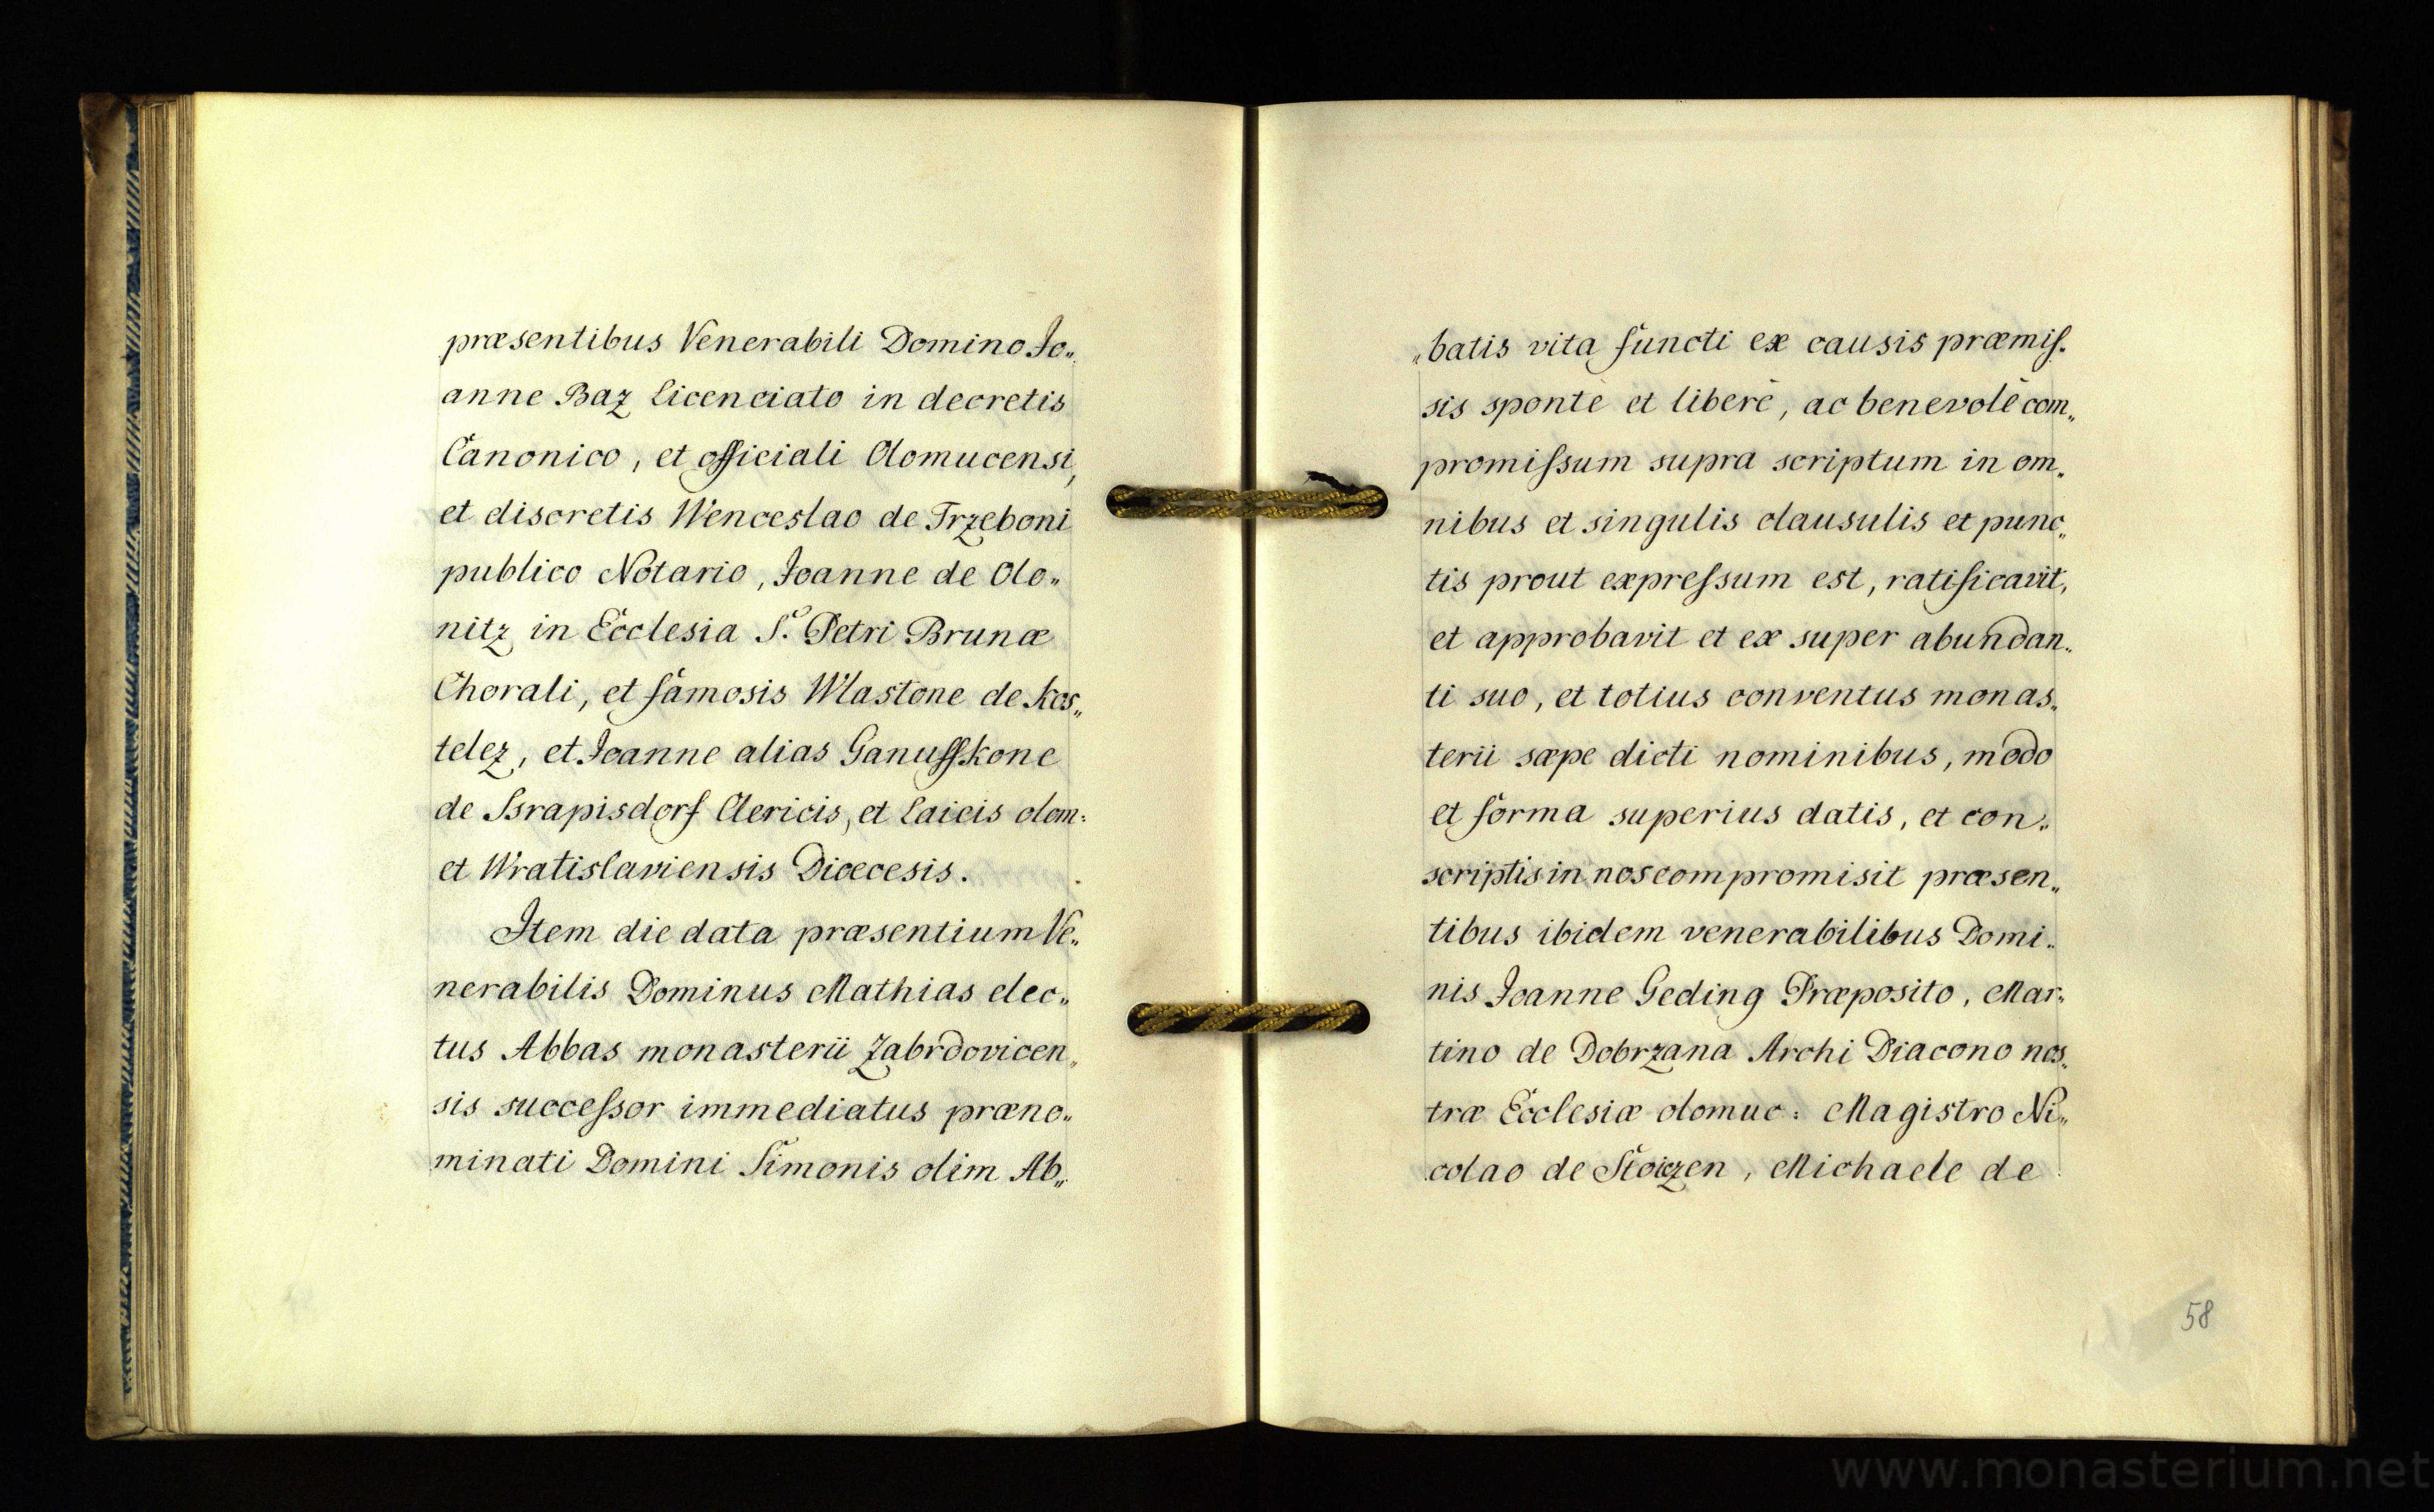 præsentibus Venerabili Domino Jo„
anne Baz Licenciato in decretis
Canonico, et officiali Olomucensi,
et discretis Wenceslao de Trzeboni
publico Notario, Joanne de Olo„
nitz in Ecclesia S. Petri Brunæ
Chorali, et famosis Wlastone de Kos„
telez, et Joanne alias Ganuſſkone
de Ssrapisdorf Clericis, et Laicis olom:
et Wratislaviensis Diœcesis.
Item die data præsentium Ve„
nerabilis Dominus Mathias elec„
tus Abbas monasterii Zabrdovicen„
sis succeſsor immediatus præno„
minati Domini Simonis olim Ab„
„batis vita functi ex causis præmiſ„
sis spontè et liberè, ac benevolè com„
promiſsum supra scriptum in om„
nibus et singulis clausulis et punc„
tis prout expreſsum est, ratificavit,
et approbavit et ex super abundan„
ti suo, et totius conventus monas„
terii sæpe dicti nominibus, modo
et forma superius datis, et con„
scriptis in nos compromisit præsen„
tibus ibidem venerabilibus Domi„
nis Joanne Geding Præposito, Mar„
tino de Dobrzana Archi Diacono nos„
træ Ecclesiæ olomuc: Magistro Ni„
colao de , Michaele de
58
www.monasterium.net